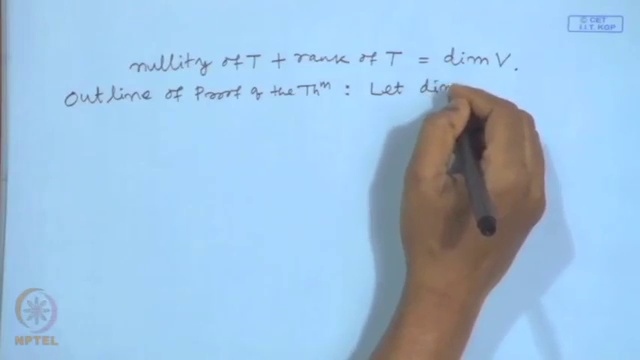 © CET
I.I.T. KGP
nullity of T + rank of T = dim V.
Outline of Proof of the Thm : Let dim
NPTEL